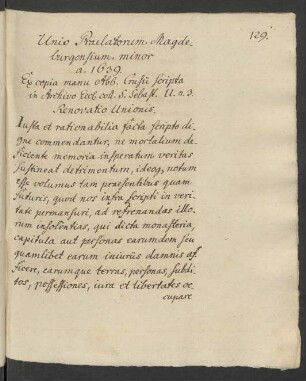 129.
Unio Praelatorum Magde
burgensium minor
a. 1639.
Ex copia manu Abb. Crusii scripta
in Archivo Eccl. coll. S. Sebast. U. n. 3.
Renovatio Unionis.
Iusta et rationabilia facta scripto di
gne commendantur, ne mortalium de
ficiente memoria insperatum veritas
sustineat detrimentum, ideoq, notum
esse volumus tam praesentibus quam
futuris, quod nos infra scripti in veri
tate permansuri, ad refrenandas illo
rum insolentias, qui dicta monasteria,
capitula aut personas earumdem seu
quamlibet earum iniuriis damnis af
ficere, earumque terras, personas, subdi
tos, possessiones, iura et libertates oc
cupare